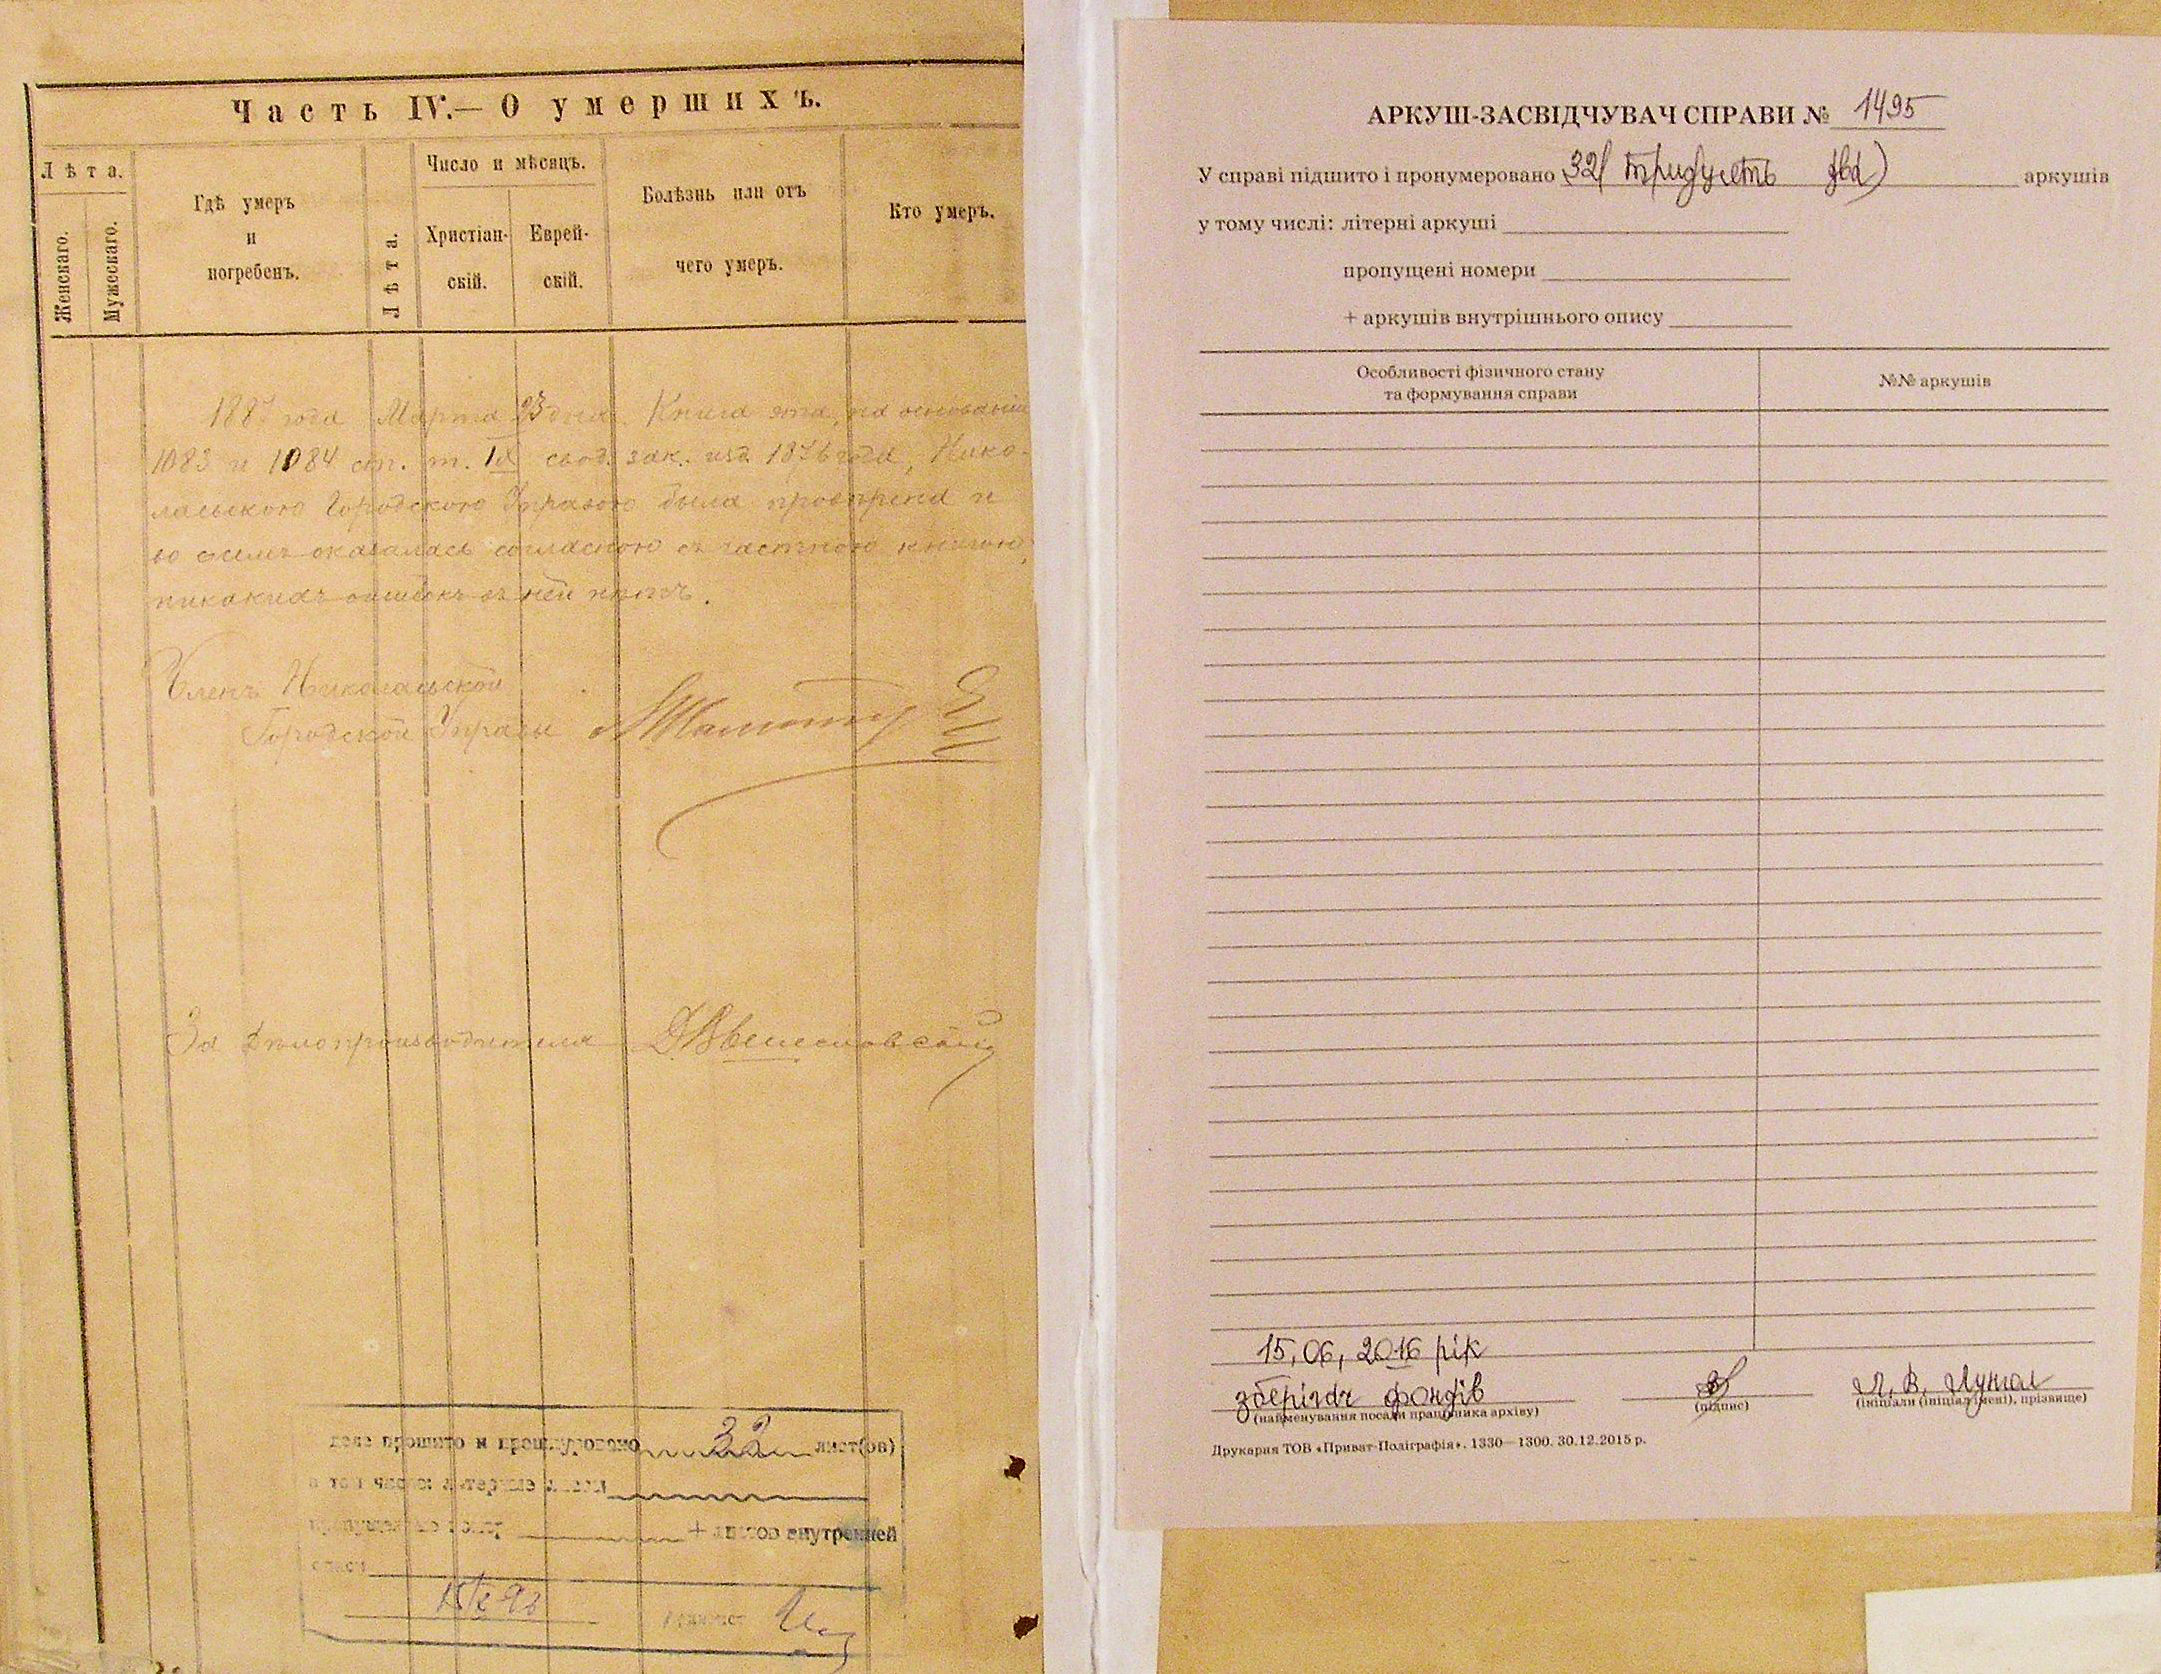 Часть IV.— О умершихъ.
Лѣта.
Женскаго.
Мужескаго.
Гдѣ умеръ
и
погребенъ.
Лѣта.
Число и мѣсяцъ.
Христіан-
скій.
Еврей-
скій.
Болѣзнь или отъ
чего умеръ.
Кто умеръ.
года Марта 23 дня. Книга эта, на основаніи
1083 и 1084 ст. т. IX свод. зак. изд. 1876 года, Нико-
лаевскою Городскою Управою была провѣрена и
во всемъ оказалась согласною съ частною книгою,
никакихъ ошибокъ въ ней нѣтъ.
Членъ Николаевской
Городской Управы
За Дѣлопроизводителя
дело прошито и пронумеровано 32 лист(ов)
в том числе: литерные листы
+ листов внутренней
описи
АРКУШ-ЗАСВІДЧУВАЧ СПРАВИ № 1495
У справі підшито і пронумеровано 32 (тридцять два) аркушів
у тому числі: літерні аркуші
пропущені номери
+ аркушів внутрішнього опису
Особливості фізичного стану
та формування справи
№№ аркушів
15,06,2016 рік
зберігач фондів
(найменування посади працівника архіву)
(підпис)
(ініціали (ініціал імені), прізвище)
Друкарня ТОВ «Приват-Поліграфія». 1330—1300. 30.12.2015 р.